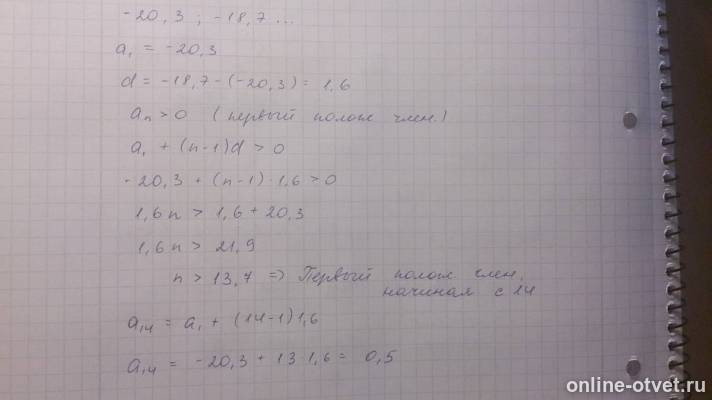 -20,3 ; -18,7 ...
a₁ = -20,3
d = -18,7 - (-20,3) = 1,6
aₙ > 0 (первый полож член.)
a₁ + (n-1)d > 0
-20,3 + (n-1)·1,6 > 0
1,6n > 1,6 + 20,3
1,6n > 21,9
n > 13,7 => Первый полож член,
начиная с 14
a₁₄ = a₁ + (14-1)1,6
a₁₄ = -20,3 + 13·1,6 = 0,5
online-otvet.ru